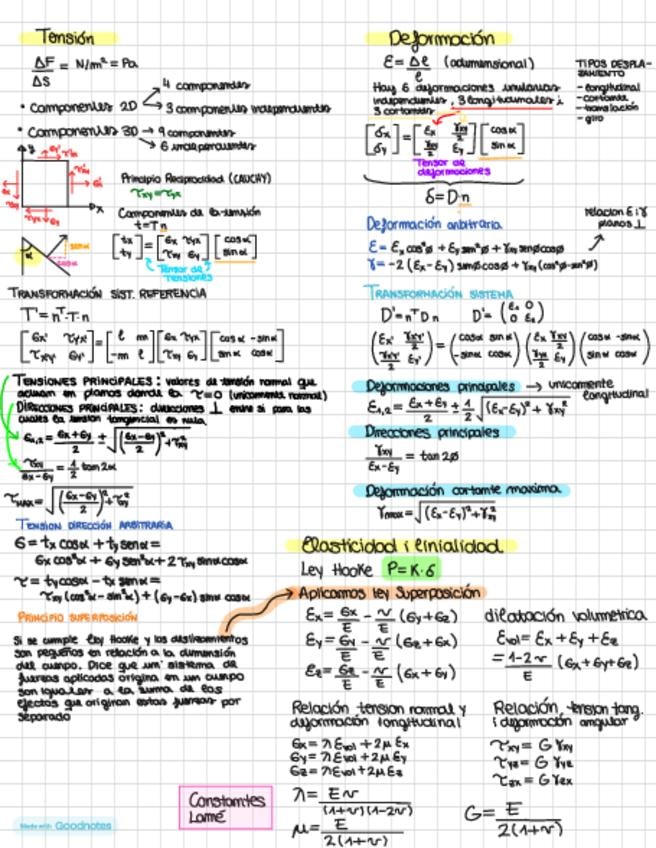 Tensión
ΔF/ΔS = N/m² = Pa
• Componentes 2D → 4 componentes
→ 3 componentes independientes
• Componentes 3D → 9 componentes
→ 6 independientes
Principio Reciprocidad (CAUCHY)
τxy = τyx
Componentes de la tensión
t = T n
[tx ty] = [σx τyx τxy σy] [cosα sinα]
Tensor de tensiones
TRANSFORMACIÓN SIST. REFERENCIA
T' = nᵀ·T·n
[σx' τyx' τxy' σy'] = [l m -m l] [σx τyx τxy σy] [cosα -sinα sinα cosα]
TENSIONES PRINCIPALES: valores de tensión normal que
actúan en planos donde la τ=0 (unicamente normal)
DIRECCIONES PRINCIPALES: direcciones ⊥ entre si para las
cuales la tensión tangencial es nula.
σ1,2 = (σx+σy)/2 ± √((σx-σy)/2)²+τxy²
τxy/(σx-σy) = 1/2 tan2α
τMAX = √((σx-σy)/2)²+τxy²
TENSION DIRECCIÓN ARBITRARIA
σ = tx cosα + ty senα =
σx cos²α + σy sen²α + 2τxy sinα cosα
τ = ty cosα - tx senα =
τxy (cos²α - sin²α) + (σy-σx) sinα cosα
PRINCIPIO SUPERPOSICIÓN
Si se cumple Ley Hooke y los deslizamientos
son pequeños en relación a la dimensión
del cuerpo. Dice que un sistema de
fuerzas aplicadas origina en un cuerpo
son iguales a la suma de los
efectos que originan estas fuerzas por
separado
Deformación
ε = Δl/l (adimensional)
Hay 6 deformaciones unitarias
independientes, 3 longitudinales i
3 cortantes
TIPOS DESPLA-
ZAMIENTO
- longitudinal
- cortante
- translación
- giro
[δx δy] = [εx γxy/2 γxy/2 εy] [cosα sinα]
Tensor de
deformaciones
δ = D·n
Deformación arbitraria
ε = εx cos²ø + εy sen²ø + γxy senøcosø
γ = -2(εx-εy) senøcosø + γxy(cos²ø-sen²ø)
relacion ε i γ
planos ⊥
TRANSFORMACIÓN SISTEMA
D' = nᵀ D n D' = (ε1 0 0 ε2)
(εx' γxy'/2 γxy'/2 εy') = (cosα sinα -sinα cosα) (εx γxy/2 γxy/2 εy) (cosα -sinα sinα cosα)
Deformaciones principales → unicamente longitudinal
ε1,2 = (εx+εy)/2 ± 1/2 √(εx-εy)² + γxy²
Direcciones principales
γxy/(εx-εy) = tan2ø
Deformación cortante maxima
γmax = √(εx-εy)²+γxy²
Elasticidad i linialidad
Ley Hooke P=K·δ
Aplicamos ley Superposición
εx = σx/E - ν/E (σy+σz)
εy = σy/E - ν/E (σx+σz)
εz = σz/E - ν/E (σx+σy)
dilatación volumetrica
εvol = εx + εy + εz
= (1-2ν)/E (σx+σy+σz)
Relación tension normal y
deformación longitudinal
σx = λεvol + 2μεx
σy = λεvol + 2μεy
σz = λεvol + 2μεz
Relación, tension tang.
i deformación angular
τxy = G γxy
τyz = G γyz
τzx = G γzx
Constantes
Lamé
λ = Eν/((1+ν)(1-2ν))
μ = E/(2(1+ν))
G = E/(2(1+ν))
Made with Goodnotes